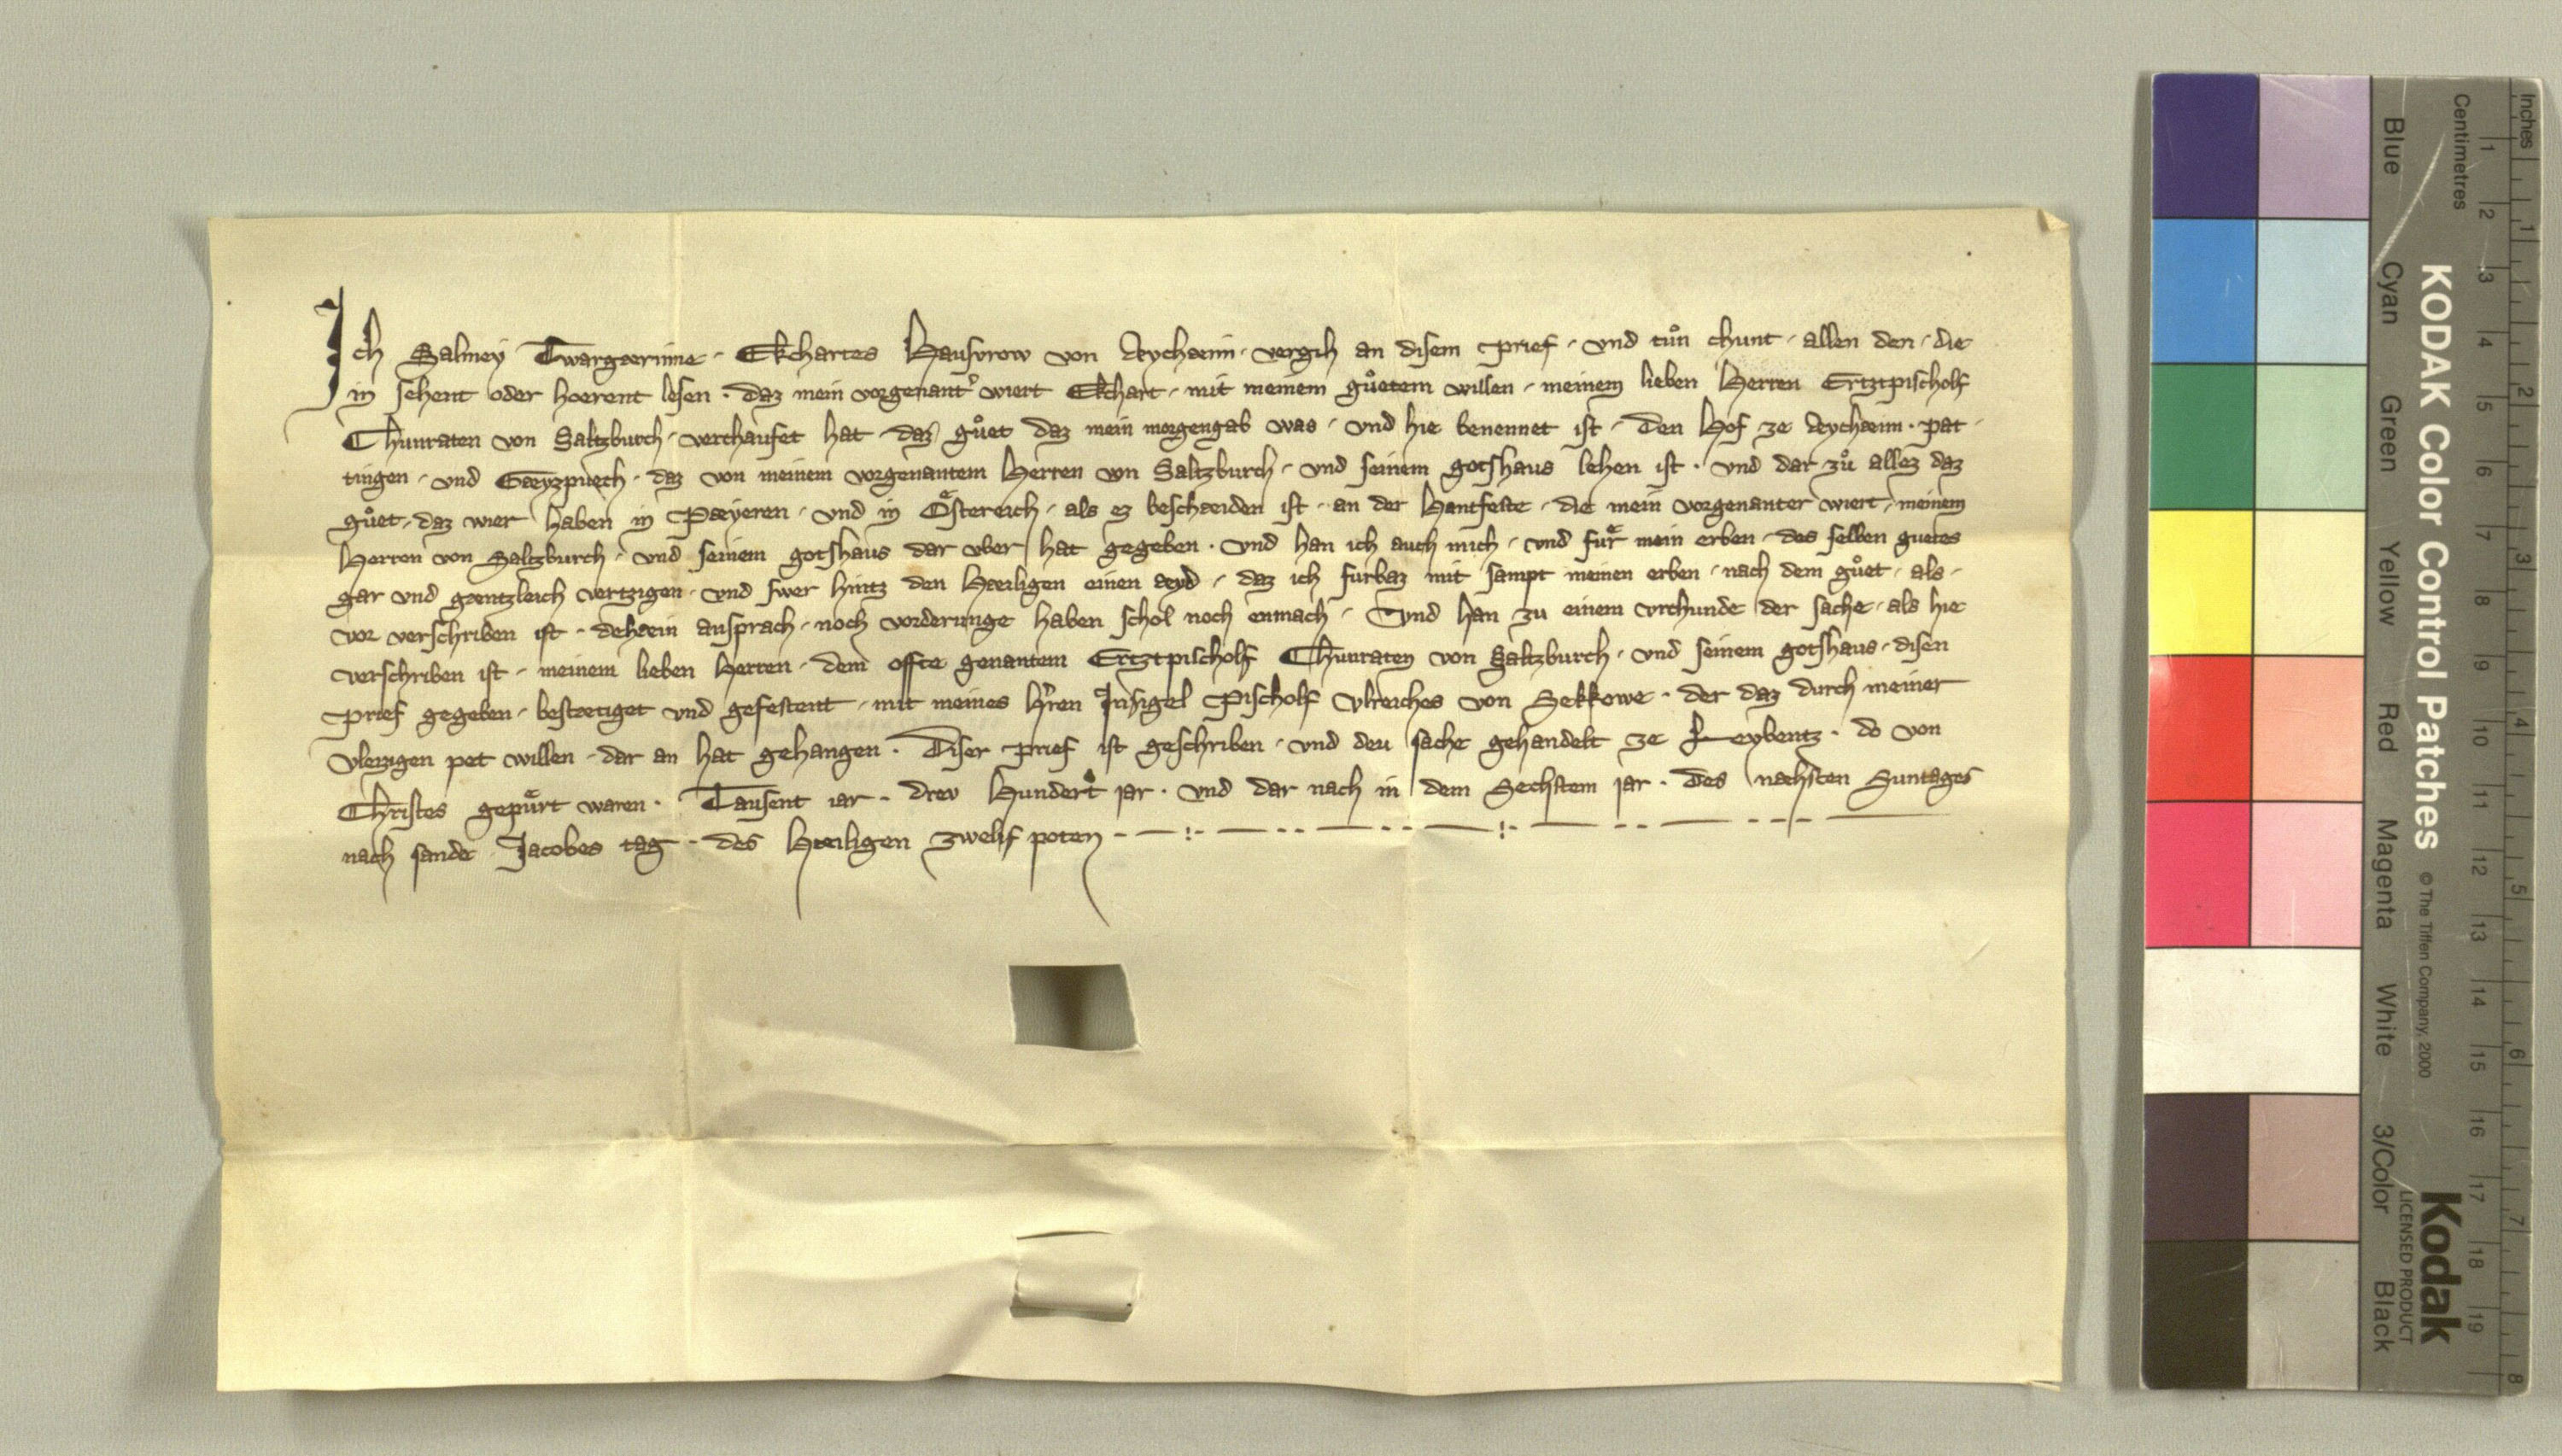 Ich Salmey Twargærinne · Ekchartes Hausvrow von Aychæim · vergih an disem prief · vnd tuͦn chunt · allen den · die
in sehent oder hoerent lesen · daz mein vorgenant' wiert Ekchart · mit meinem guͦetem willen · meinem lieben Herren Ertzpischolf
Chunraten von Saltzburch · verchaufet hat · daz guͦet daz mein morgengab was · vnd hie benennet ist · Den Hof ze Aychæim · Pat-
tingen · vnd Gæyzpuech · daz von meinem vorgenantem Herren von Saltzburch · vnd seinem gotshaus lehen ist · vnd dar zuͦ allez daz
guͦet · daz wier haben in Pæyeren · vnd in Oͤstereich · als ez beschæiden ist · an der Hantfeste · die mein vorgenanter wiert · meinem
Herren von Saltzburch · vnd seinem gotshaus dar vber hat gegeben · vnd han ich auch mich · vnd fuͤr mein erben · des selben guetes
gar vnd gæntzleich vertzigen · vnd swer hintz den Hæiligen einen ayd · daz ich furbaz mit sampt meinen erben · nach dem guͦet · als ·
vor verschriben ist · dehæin ansprach · noch vorderunge haben schol noch enmach · Vnd han zu einem vrchunde der sache · als hie
verschriben ist · meinem lieben Herren · dem offte genantem Ertzpischolf Chunraten von Saltzburch · vnd seinem gotshaus · disen
prief gegeben · bestætiget vnd gefestent · mit meines h'ren Insigel Pischolf Vlreiches von Sekkowe · der daz durch meiner
vleizzigen pet willen · dar an hat gehangen · Diser prief ist geschriben · vnd deu sache gehandelt ze Leybentz · do von
Christes gepuͤrt waren · Tausent iar · drev Hundert jar · vnd dar nach in dem Sechstem jar · des næhsten Suntages
nach sande Jacobes tag · des Hæiligen zwelif poten
KODAK Color Control Patches © The Tiffen Company, 2000 Kodak
LICENSED PRODUCT
Inches 1 2 3 4 5 6 7 8
Centimetres 1 2 3 4 5 6 7 8 9 10 11 12 13 14 15 16 17 18 19
Blue Cyan Green Yellow Red Magenta White 3/Color Black